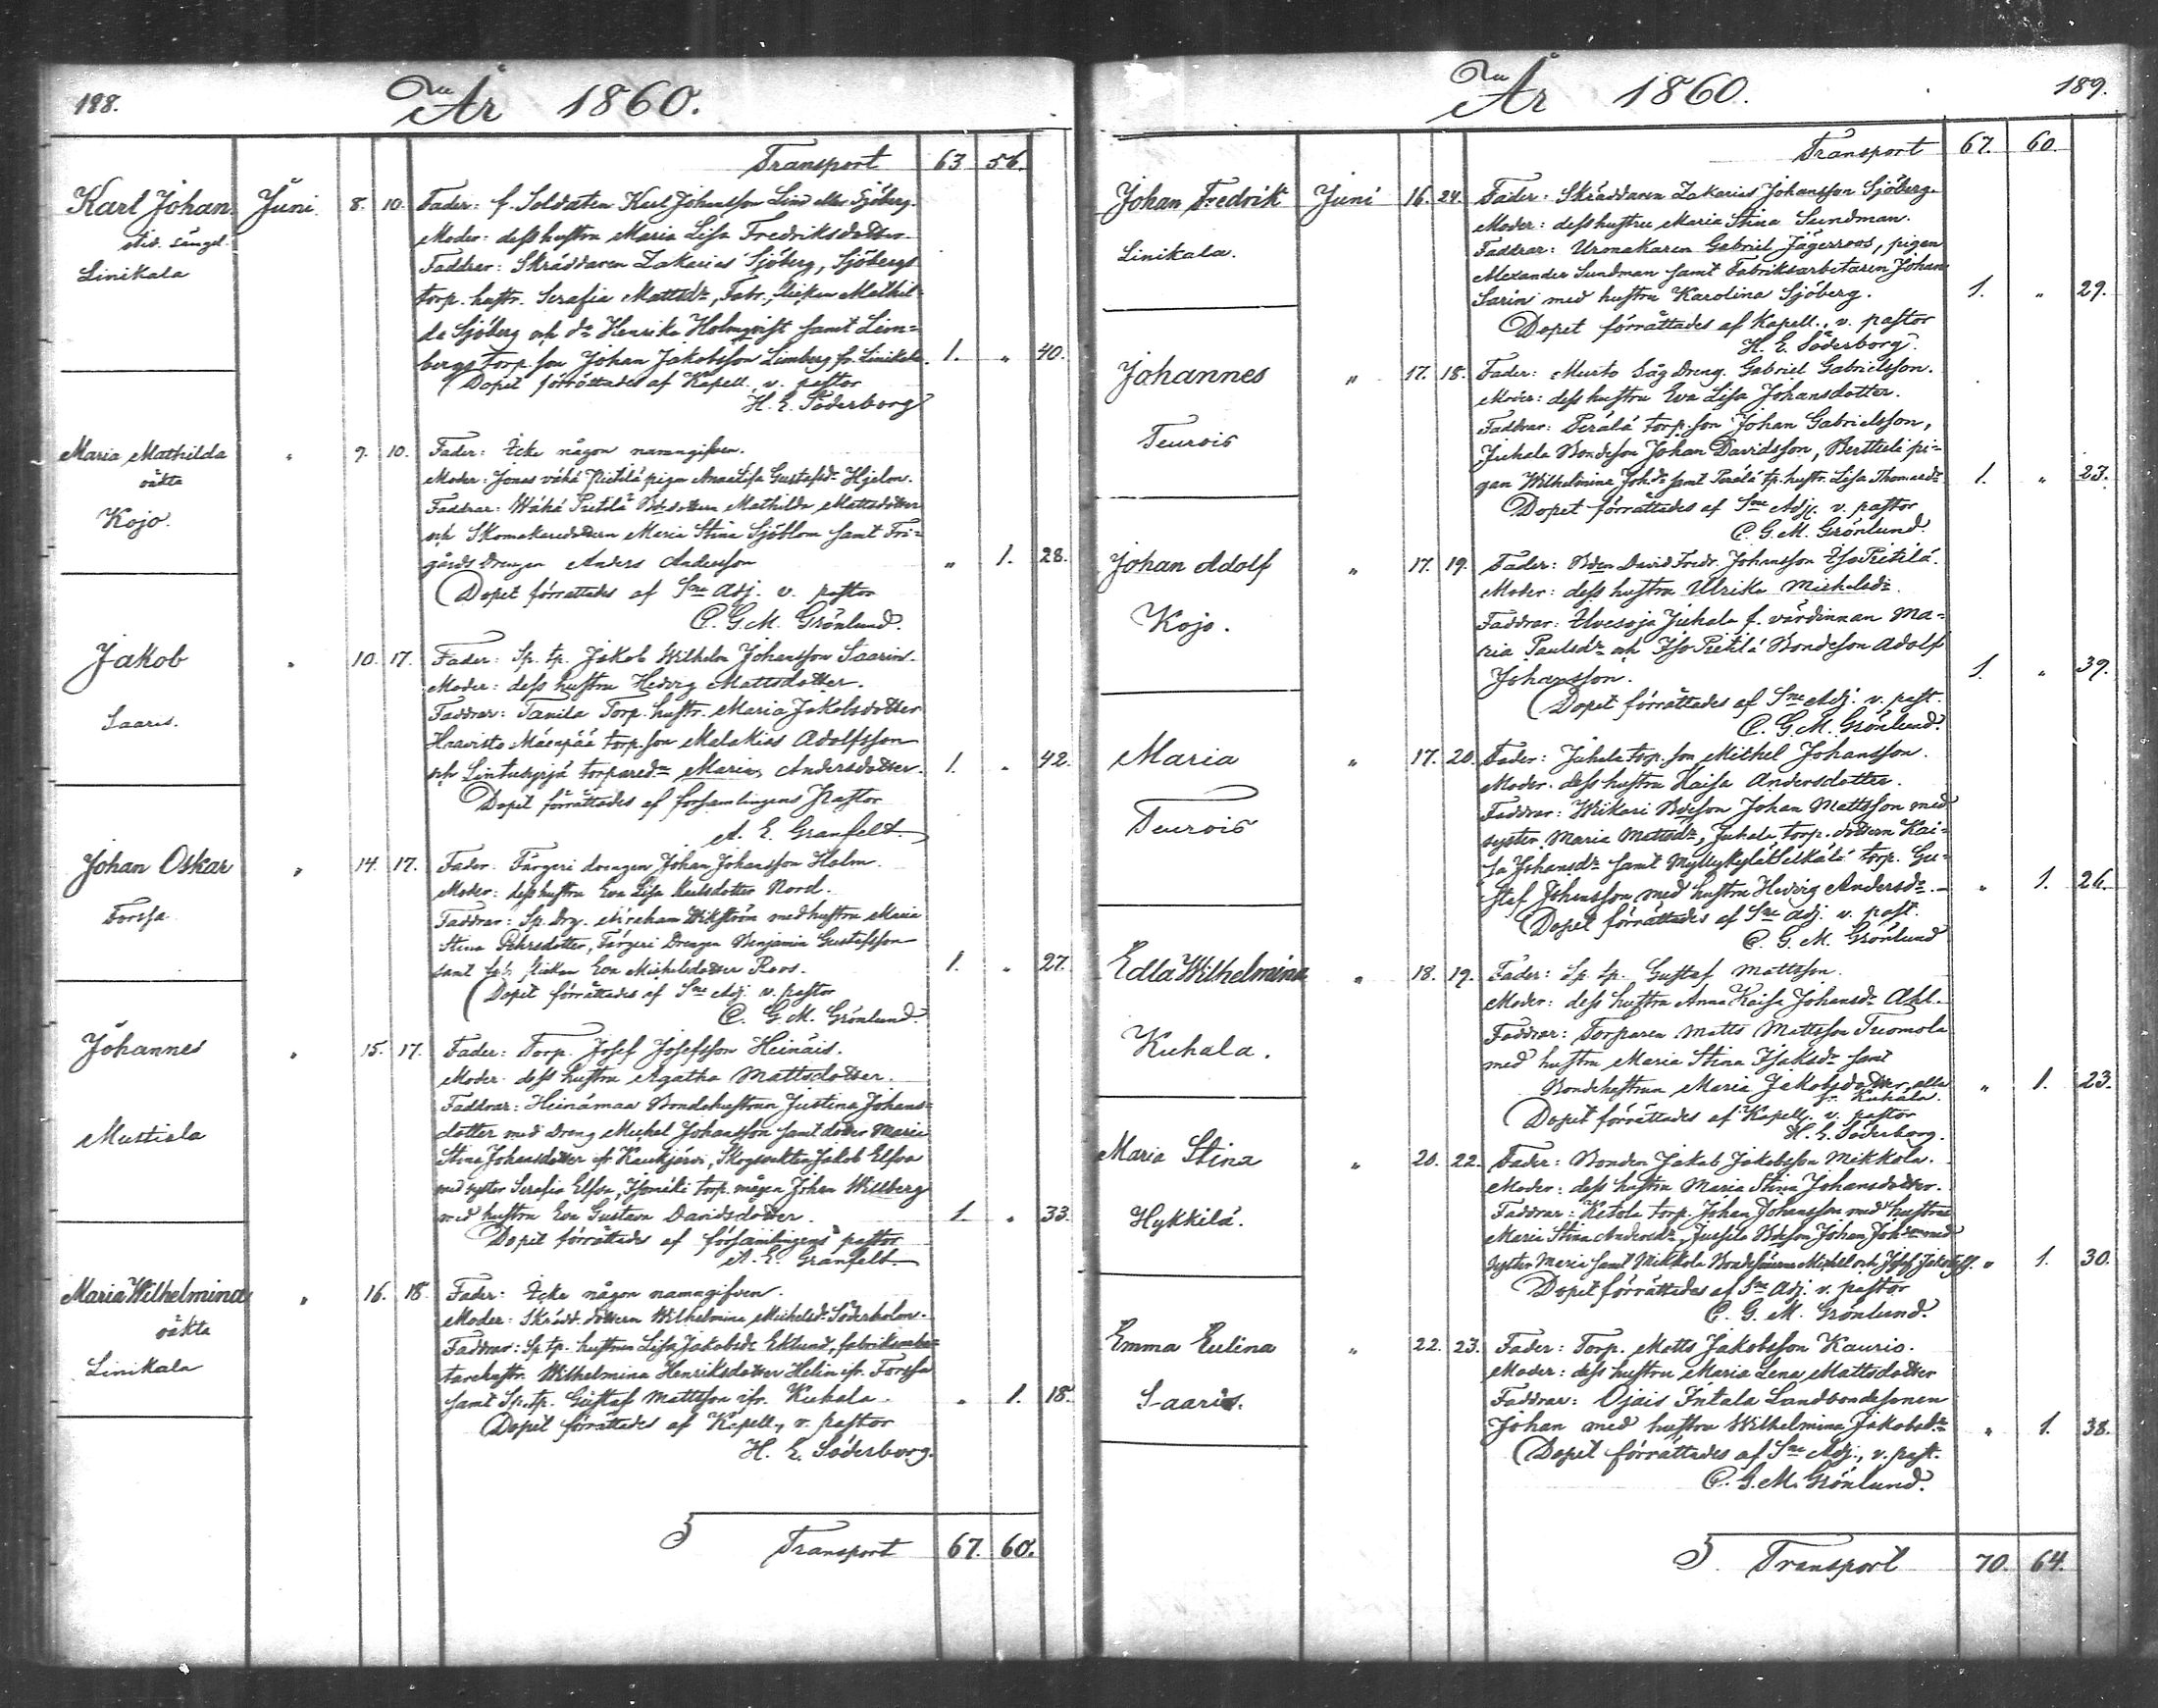 188.
År 1860.
Transport 63 56.
Karl Johan. Juni 8. 10. Fader: f. Soldaten Karl Johansson Lind eller Sjöberg.
Moder: dess hustru Maria Lisa Fredriksdotter.
Linikala
Faddrar: Skräddaren Zakarias Sjöberg, Sjöbergs
torp. hustr. Serafia Mattsdr, Fabr. flickan Mathil-
da Sjöberg och do Henrika Holmqvist samt Lim-
bergs torp. son Johan Jakobsson Limberg fr. Linikala. 1. " 40.
Dopet förrättades af Kapell., v. pastor
H. E. Söderborg
Maria Mathilda " 9. 10. Fader: Icke någon namngifven.
oäkta
Moder: Jonas vähä Pietilä piga Anna Lisa Gustafsdr Hjelm.
Kojo.
Faddrar: Wähä Pietilä Bdedottern Mathilda Mattsdotter
och Skomakaredottern Maria Stina Sjöblom samt
gårds Drengen Anders Andersson " 1. 28.
Dopet förrättades af Sne Adj. v. pastor
C. G. M. Grönlund.
Jakob " 10. 17. Fader: Sp. tp. Jakob Wilhelm Johansson Saarin.
Moder: dess hustru Hedvig Mattsdotter.
Saaris.
Faddrar: Tanila Torp. hustr. Maria Jakobsdotter
Haavisto Mäenpää torp. son Malakias Adolfsson
och Lintupyrjä torparedr Maria Andersdotter. 1. " 42.
Dopet förrättades af församlingens Pastor
A. E. Granfelt.
Johan Oskar " 14. 17. Fader: Färgeri drengen Johan Johansson Holm.
Forssa
Moder: dess hustru Eva Lisa Karlsdotter Nord.
Faddrar: Sp. Drg. Abraham Wikström med hustru Maria
Stina Pehrsdotter, Färgeri Drengen Benjamin Gustafsson
samt fab. flickan Eva Michelsdotter Roos. 1. " 27.
Dopet förrättades af Sne Adj. v. pastor
C. G. M. Grönlund.
Johannes " 15. 17. Fader: Torp. Josef Josefsson Heinäis.
Moder: dess hustru Agatha Mattsdotter.
Mustiala
Faddrar: Heinämaa Bondehustrun Justina Johans-
dotter med Dreng Michel Johansson samt dotter Maria
Stina Johansdotter fr. Kaukjärvi, Skogvakten Jakob Elfva
med syster Serafia Elfva, torp. mågen Johan Willberg
med hustru Eva Gustava Davidsdotter. 1. " 33.
Dopet förrättades af församlingens pastor
A. E. Granfelt.
Maria Wilhelmina " 16. 18. Fader: Icke någon namngifven.
oäkta
Moder: Skrädd. dottern Wilhelmina Michelsdr Söderholm.
Linikala
Faddrar: Sp. tp. hustrun Lisa Jakobsdr Eklund, fabriksarbe-
tarehustr. Wilhelmina Henriksdotter Helin ifr. Forssa
samt Sp. tp. Gustaf Mattsson ifr. Kuhala. " 1. 18.
Dopet förrättades af Kapell., v. pastor
H. E. Söderborg.
Transport 67. 60.
År 1860.
189.
Transport 67. 60.
Johan Fredrik Juni 16. 24. Fader: Skräddaren Zakarias Johansson Sjöberg.
Moder: dess hustru Maria Stina Sundman.
Linikala.
Faddrar: Urmakaren Gabriel Jägerroos, pigan
Alexandra Sundman samt Fabriksarbetaren Johan
Sarin med hustru Karolina Sjöberg. 1. " 29.
Dopet förrättades af Kapell., v. pastor
H. E. Söderborg.
Johannes " 17. 18. Fader: Murto Såg Dreng. Gabriel Gabrielsson.
Moder: dess hustru Eva Lisa Johansdotter.
Teurois
Faddrar: Perälä torp. son Johan Gabrielsson,
Juhala Bondeson Johan Davidsson, Bertteli pi-
gan Wilhelmina Johdr samt Perälä tp. hustr. Lisa Thomasdr 1. " 23.
Dopet förrättades af Sne Adj. v. pastor
C. G. M. Grönlund.
Johan Adolf " 17. 19. Fader: Bden David Fredr. Johansson Iso Pietilä.
Moder: dess hustru Ulrika Michelsdr.
Kojo.
Faddrar: Uvesoja Juhala f. värdinnan Ma-
ria Paulsdr och Iso Pietilä Bondeson Adolf
Johansson. 1. " 39.
Dopet förrättades af Sne Adj. v. past.
C. G. M. Grönlund.
Maria " 17. 20. Fader: Juhala torp. son Michel Johansson.
Moder: dess hustru Kaisa Andersdotter.
Teurois
Faddrar: Wikari Bdeson Johan Mattsson med
syster Maria Mattsdr, Juhala torp. dottern Kai-
sa Johansdr samt Myllykylä Selkälä torp. Gu-
staf Johansson med hustru Hedvig Andersdr. " 1. 26.
Dopet förrättades af Sne Adj. v. past.
C. G. M. Grönlund
Edla Wilhelmina " 18. 19. Fader: Sp. tp. Gustaf Mattsson.
Moder: dess hustru Anna Kaisa Johansdr Ahl.
Kuhala.
Faddrar: Torparen Matts Mattsson Tuomola
med hustru Maria Stina Isaksdr samt
Bondehustrun Maria Jakobsdotter, alla " 1. 23.
fr. Kuhala.
Dopet förrättades af Kapell. v. pastor
H. E. Söderborg.
Maria Stina " 20. 22. Fader: Bonden Jakob Jakobsson Mikkola.
Moder: dess hustru Maria Stina Johansdotter.
Hykkilä.
Faddrar: Ketola torp. Johan Johansson med hustru
Maria Stina Andersdr, Jussila Bdeson Johan Johsson med
syster Maria samt Mikkola Bondesönerna Michel och Josef Jakobss. " 1. 30.
Dopet förrättades af Sne Adj. v. pastor
C. G. M. Grönlund.
Emma Eulina " 22. 23. Fader: Torp. Matts Jakobsson Kaurio.
Moder: dess hustru Maria Lena Mattsdotter
Saaris.
Faddrar: Ojais Intala Landbondesonen
Johan med hustru Wilhelmina Jakobsdr " 1. 38.
Dopet förrättades af Sne Adj., v. past.
C. G. M. Grönlund.
Transport 70. 64.